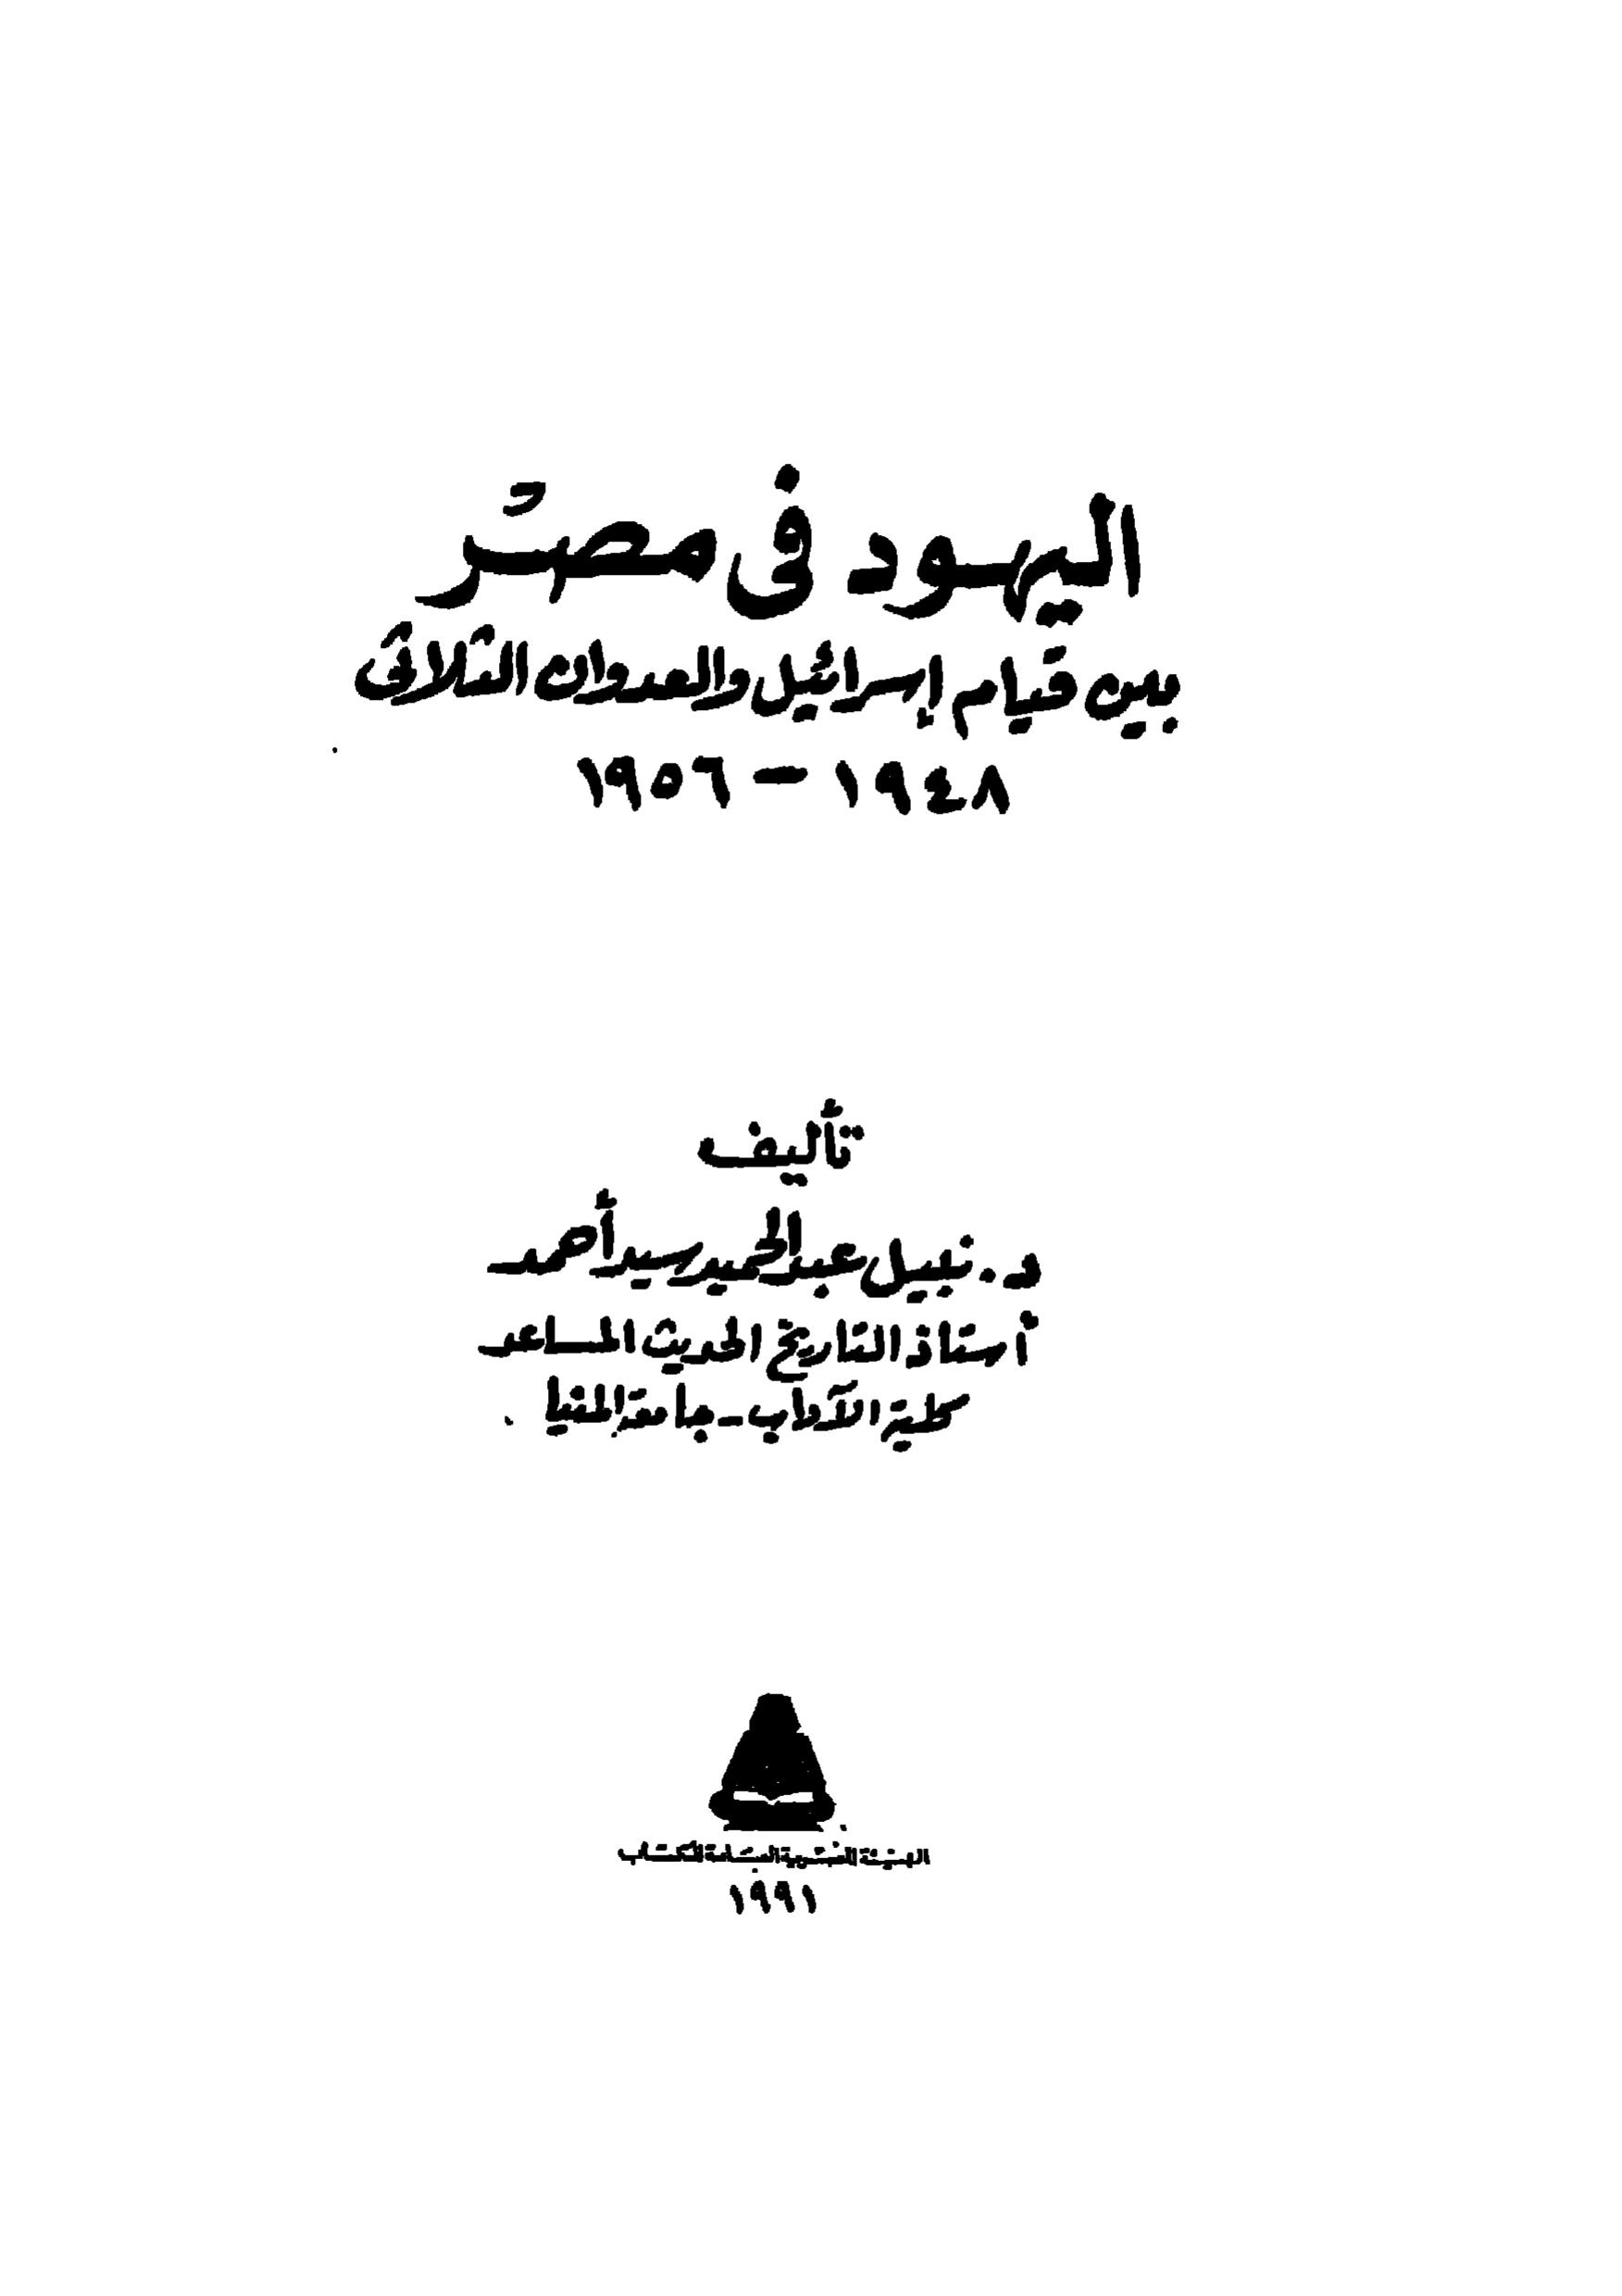 اليهود فى مصر
بين قيام إسرائيل والعدوان الثلاثى
١٩٤٨ – ١٩٥٦
تأليف
د. نبيل عبد الحميد سيد أحمد
أستاذ التاريخ الحديث المساعد
كلية الآداب - جامعة المنيا
الهيئة المصرية العامة للكتاب
١٩٩١